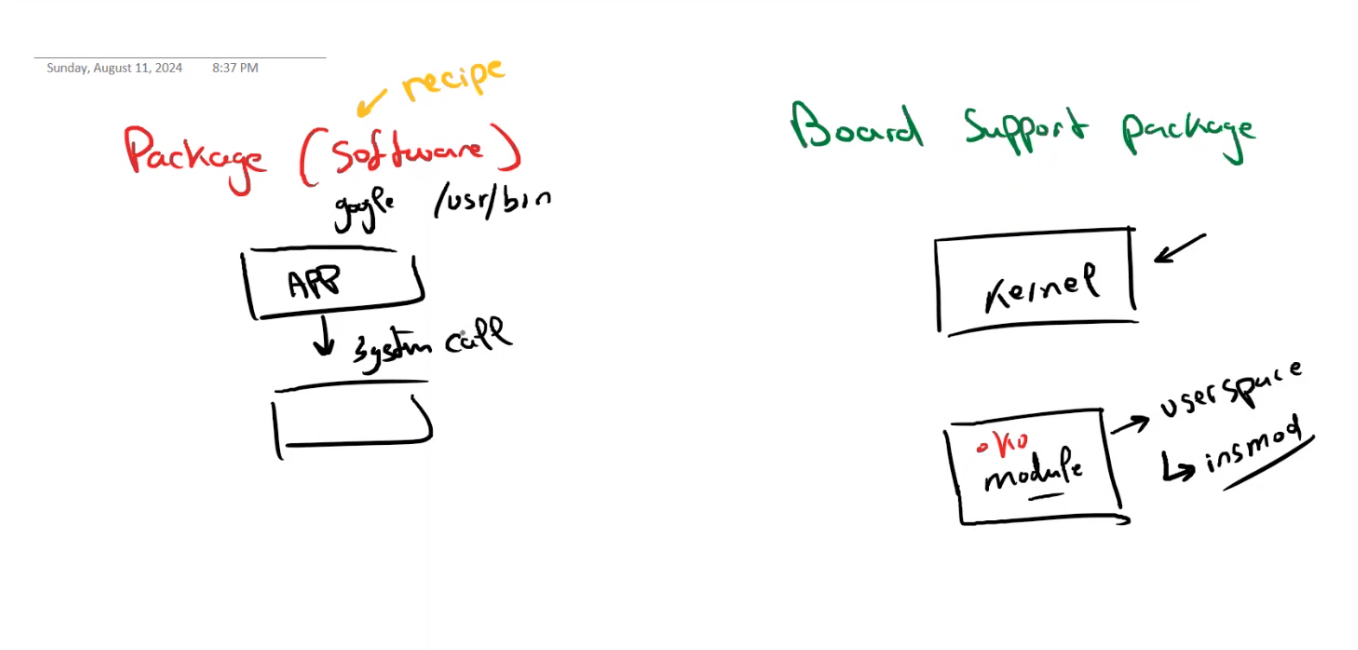 Sunday, August 11, 2024 8:37 PM
recipe
Package (Software)
google /usr/bin
APP
system call
Board Support package
Kernel
userspace
.ko
module
insmod